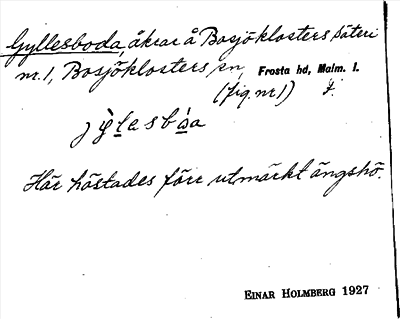 Gyllesboda, åkrar å Bosjöklosters säteri
nr. 1, Bosjöklosters sn, Frosta hd, Malm. l.
(fig. nr 1)
Här höstades förr utmärkt ängshö.
EINAR HOLMBERG 1927